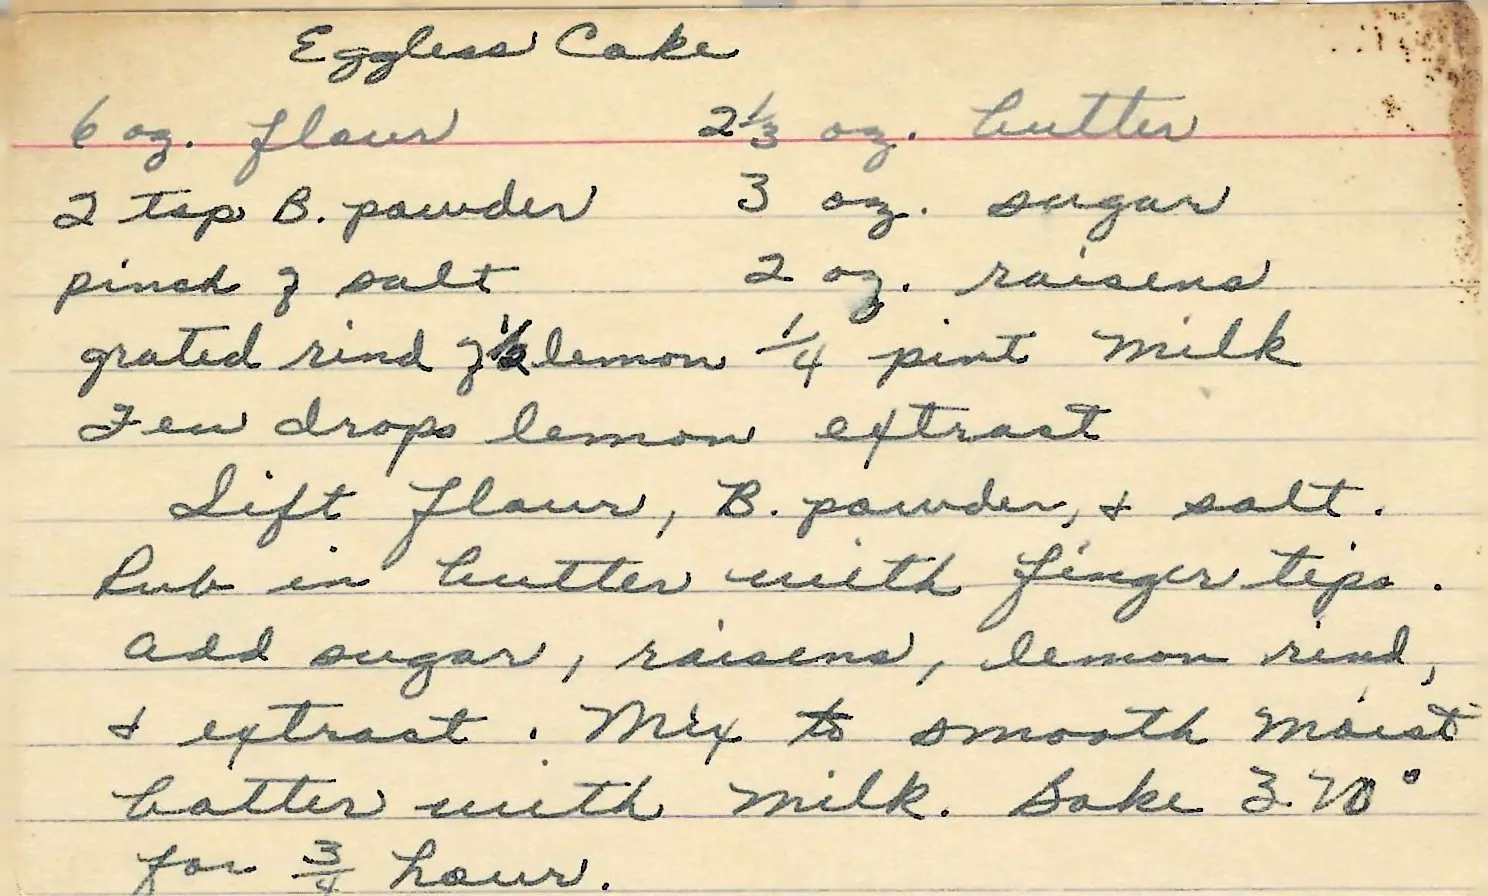 Eggless Cake
6 oz. flour 2 1/3 oz. butter
2 tsp B. powder 3 oz. sugar
pinch of salt 2 oz. raisens
grated rind of 1/2 lemon 1/4 pint milk
Few drops lemon extract
Sift flour, B. powder, & salt.
Rub in butter with finger tips.
add sugar, raisens, lemon rind,
& extract. Mix to smooth moist
batter with milk. Bake 370°
for 3/4 hour.